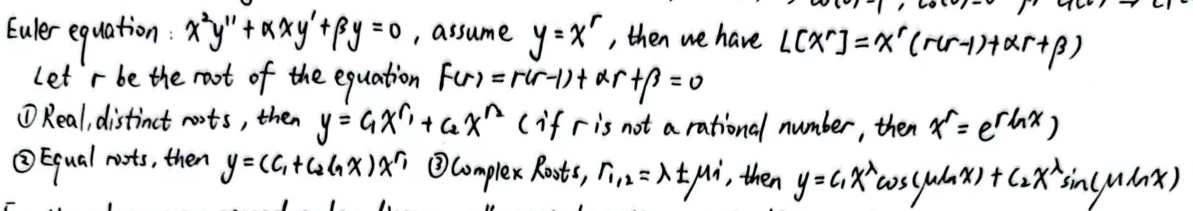 Euler equation : x²y'' + αxy' + βy = 0 , assume y = x^r , then we have L[x^r] = x^r (r(r-1) + αr + β)
Let r be the root of the equation F(r) = r(r-1) + αr + β = 0
① Real, distinct roots , then y = c₁x^r₁ + c₂x^r₂ (if r is not a rational number, then x^r = e^{r ln x})
② Equal roots, then y = (c₁ + c₂ ln x) x^r₁ ③ Complex Roots, r₁,₂ = λ ± μi , then y = c₁x^λ cos(μ ln x) + c₂x^λ sin(μ ln x)